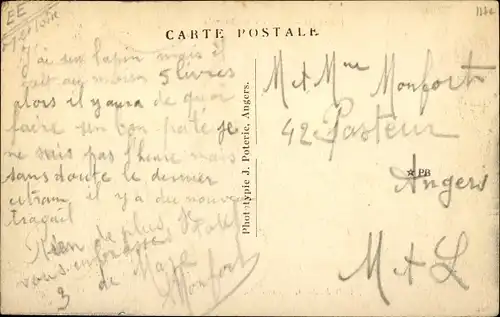 EE
CARTE POSTALE
J'ai un lapin mais il
fait au moins 5 livres
alors il y aura de quoi
faire un bon pâté je
ne sais pas l'heure mais
sans doute le dernier
il y a du nouveau
travail
Rien de plus
vous embrasses
de
Monfort
Phototypie J. Poterie, Angers.
M et Mme Monfort
42 Pasteur
PB
Angers
M et L